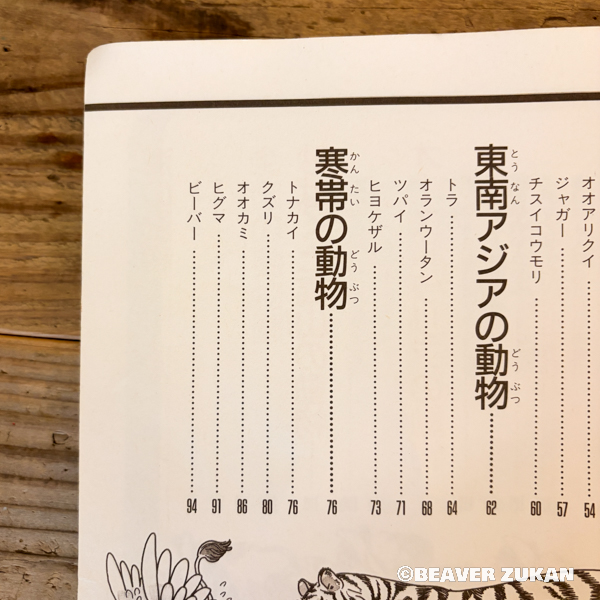 オオアリクイ 54
ジャガー 57
チスイコウモリ 60
東南アジアの動物 62
とうなん どうぶつ
トラ 64
オランウータン 68
ツパイ 71
ヒヨケザル 73
寒帯の動物 76
かんたい どうぶつ
トナカイ 76
クズリ 80
オオカミ 86
ヒグマ 91
ビーバー 94
©BEAVER ZUKAN